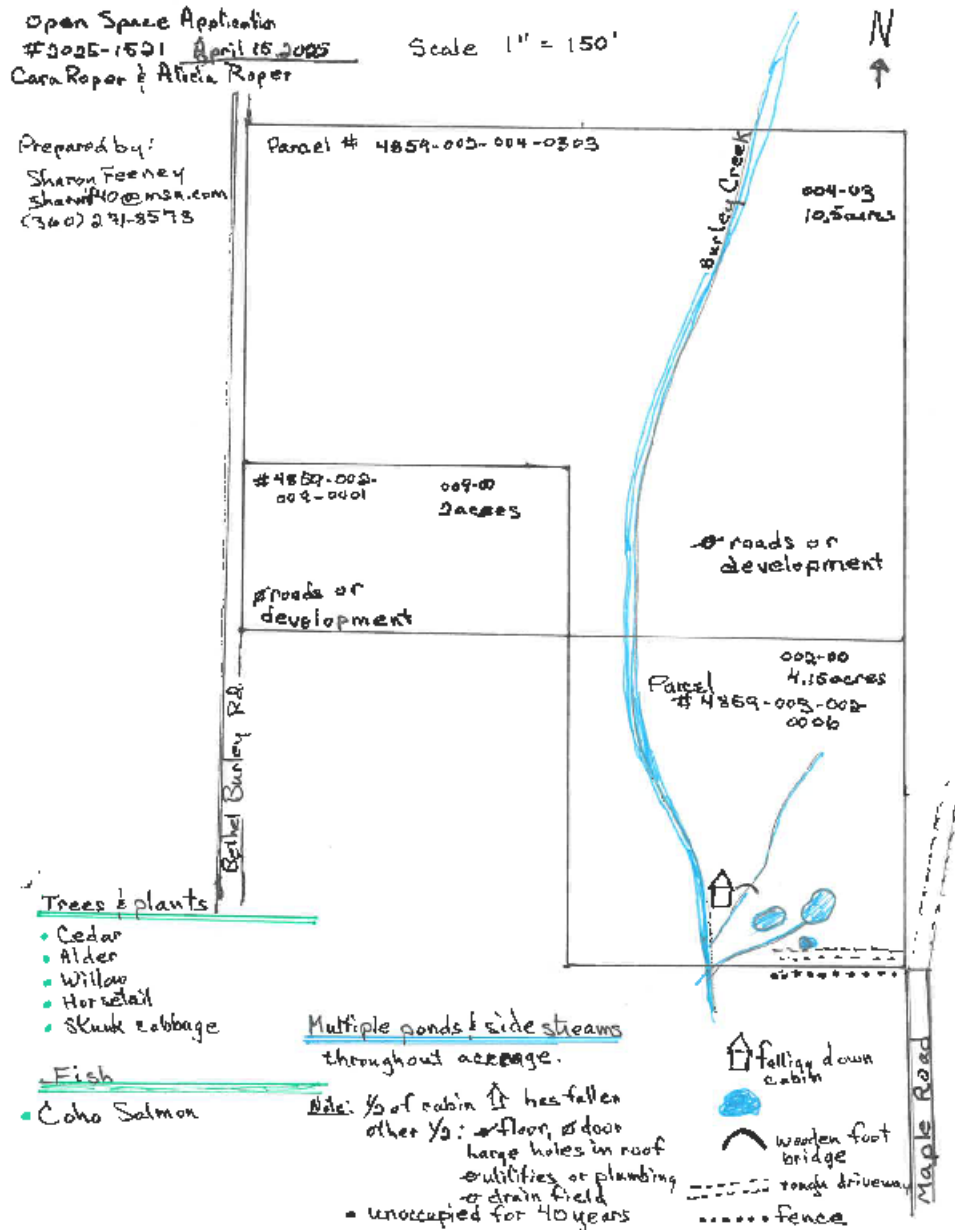 Open Space Application
#2025-1521 April 15, 2025
Cara Roper & Alicia Roper
Scale 1" = 150'
N
Prepared by:
Sharon Feeney
(360) 271-8573
Parcel # 4859-002-004-0303
004-03
10.5 acres
Burley Creek
#4859-002-
009-0401
009-00
2 acres
ø roads or
development
ø roads or
development
002-00
4.15 acres
Parcel
#4859-003-002-
0006
Bethel Burley Rd.
Trees & plants
• Cedar
• Alder
• Willow
• Horsetail
• Skunk cabbage
Fish
• Coho Salmon
Multiple ponds & side streams
throughout acreage.
Note: 1/2 of cabin has fallen
other 1/2: ø floor, ø door
Large holes in roof
ø utilities or plumbing
ø drain field
• unoccupied for 40 years
falling down
cabin
wooden foot
bridge
rough driveway
fence
Maple Road